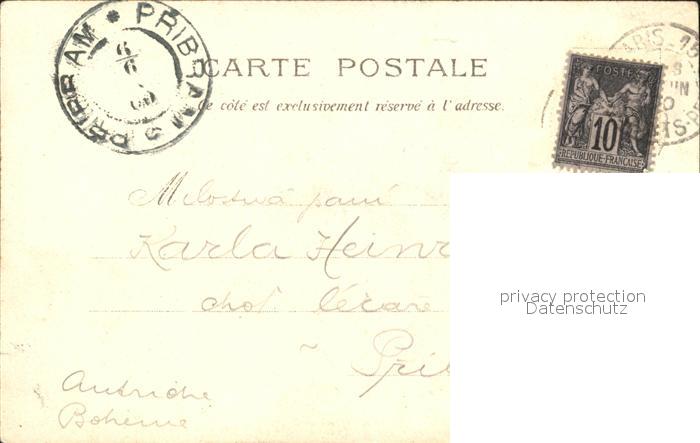 PRIBRAM * PŘIBRAM
6/6
00
CARTE POSTALE
Ce côté est exclusivement réservé à l'adresse.
PARIS
POSTES
10
RÉPUBLIQUE FRANÇAISE
Milostivá paní
Karla Heinr
choť lékaře
Příb
Autriche
Bohême
privacy protection
Datenschutz